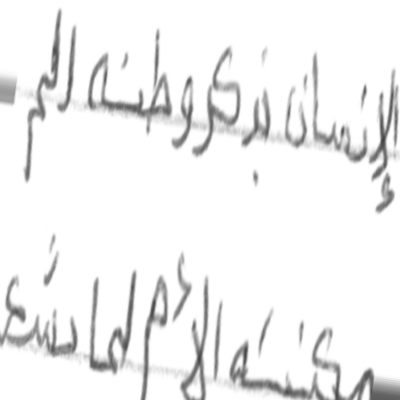 الإنسان بذكر وطنه الم
مكنته الأم لما تشع